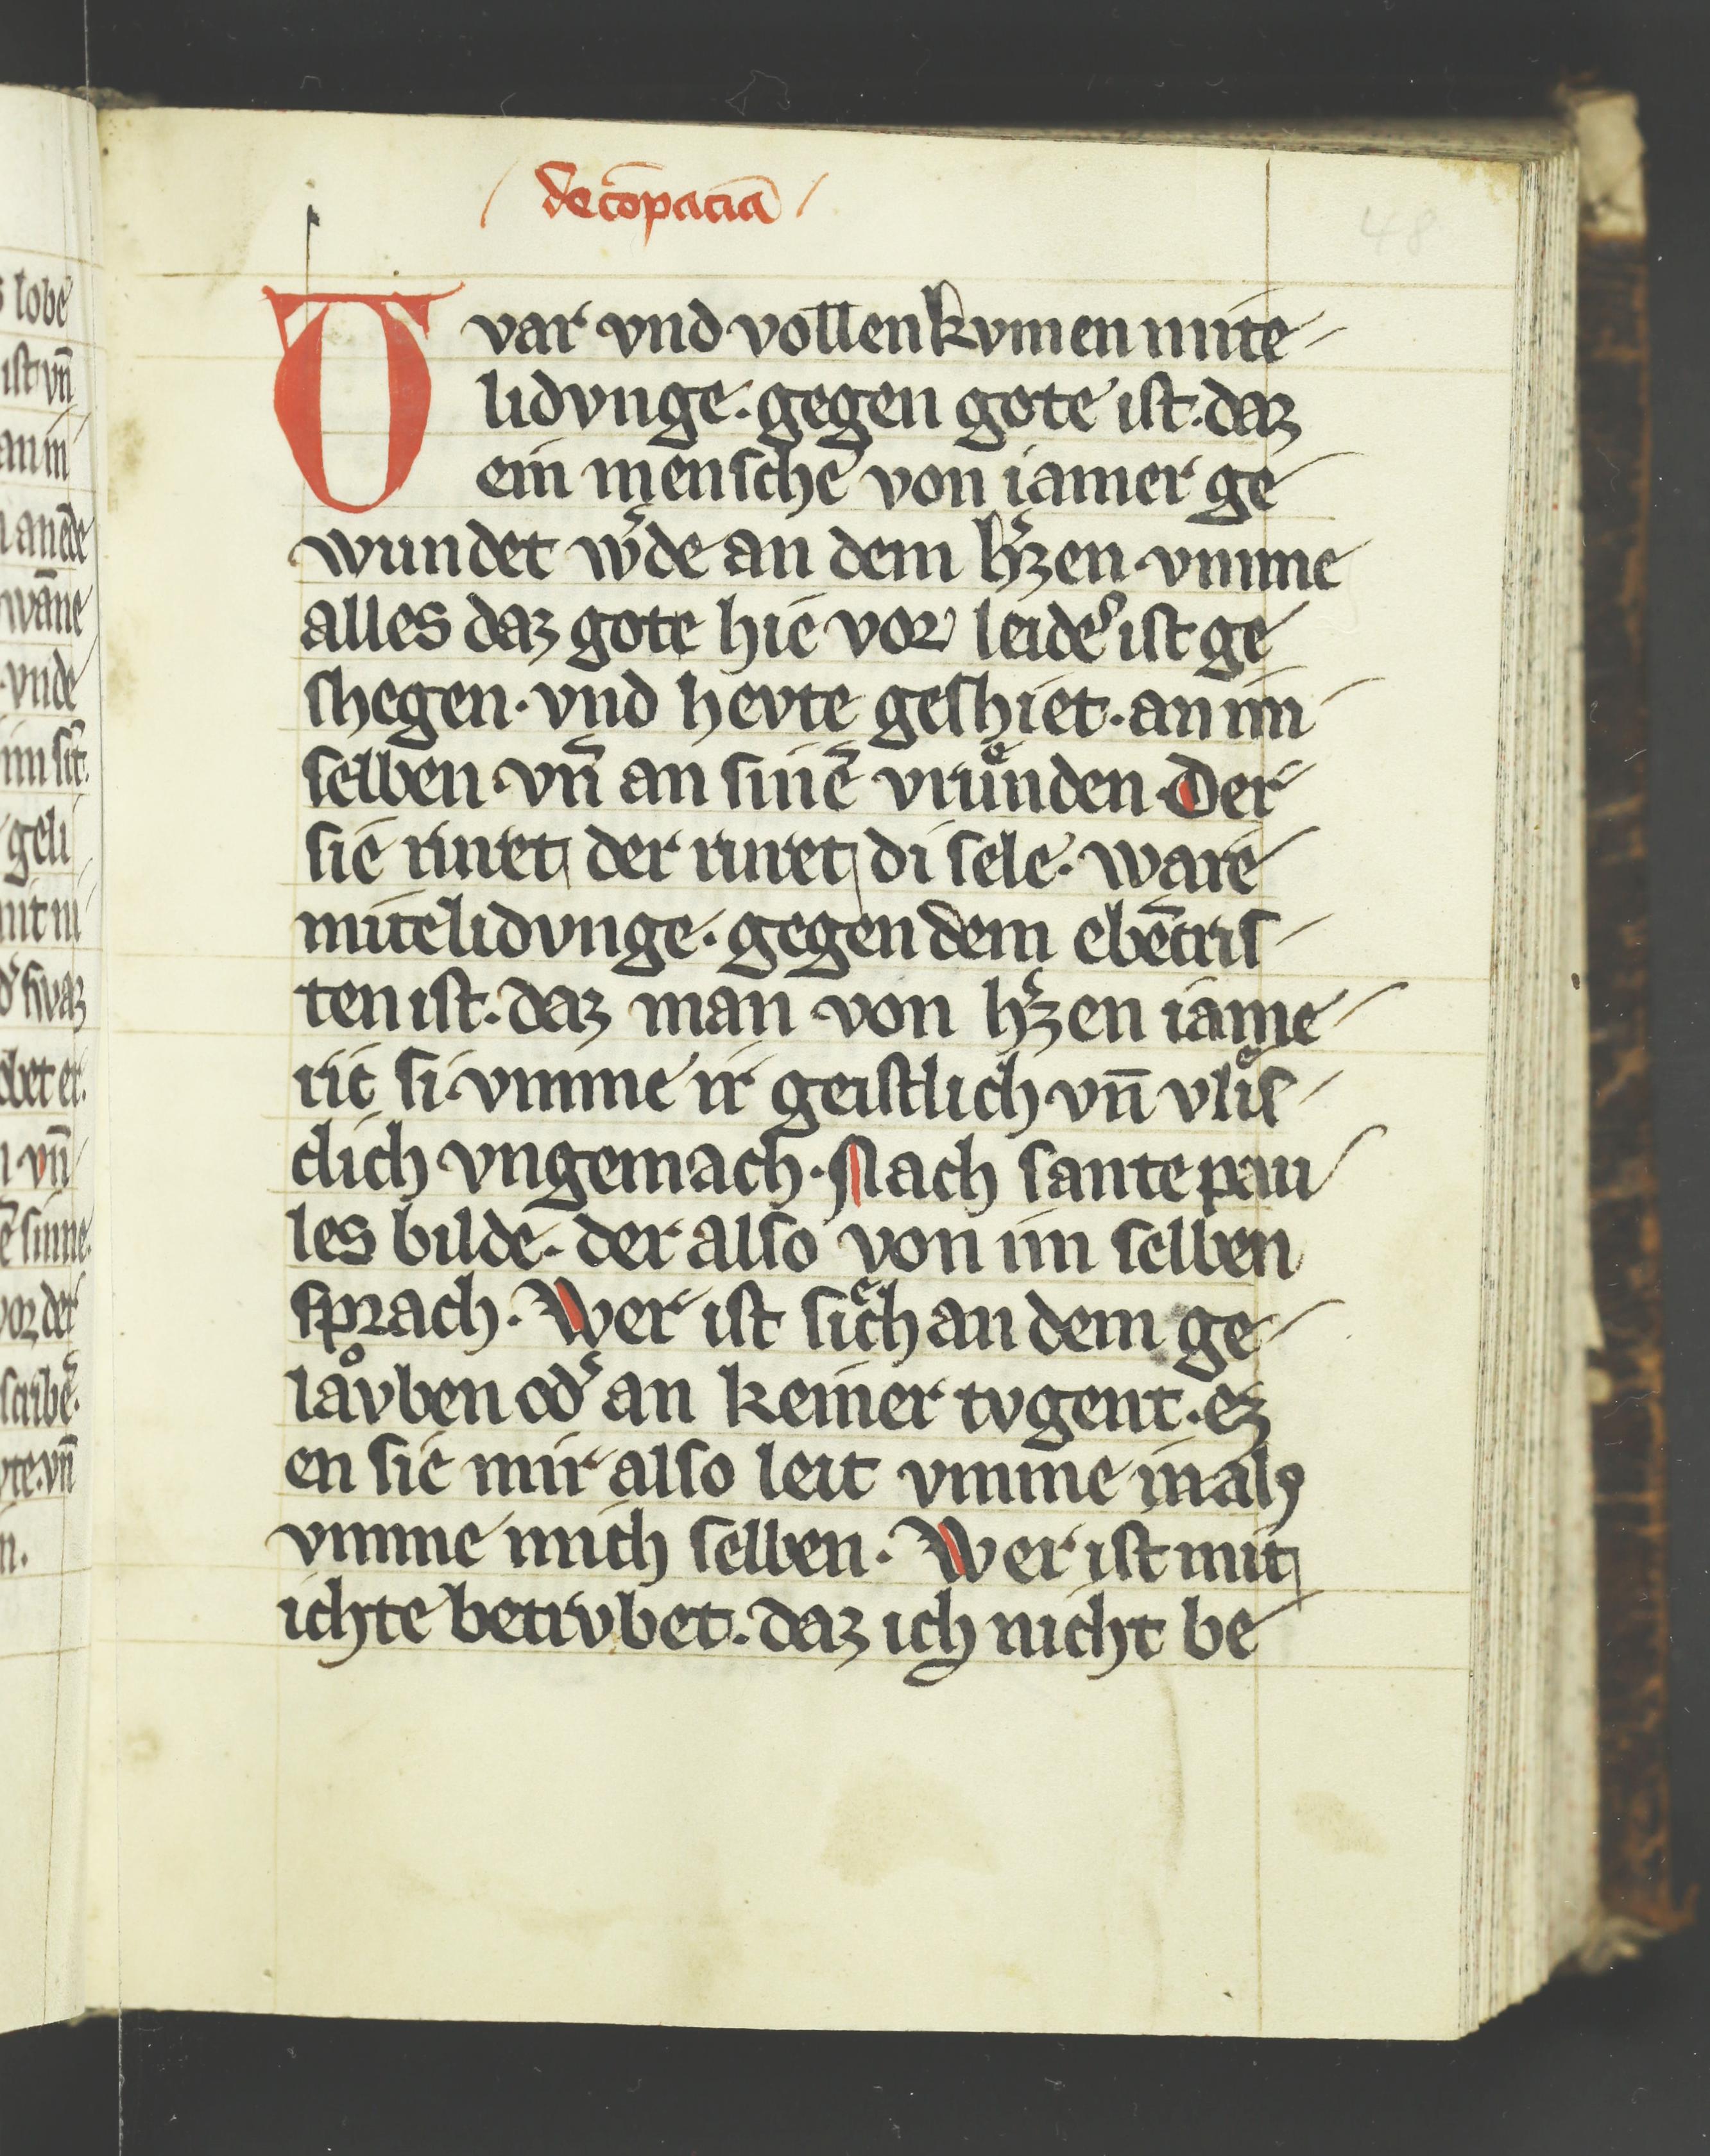 de cōpaciā
48
V var vnd vollenkvmen mite
lidvnge. gegen gote ist. daz
ein mensche von iamer ge
wundet w͛de an dem h͛zen. vmme
alles daz gote hie vor leid͛ ist ge
shegen. vnd hevte geshiet. an im
selben. vn̄ an sinē vruͤnden. Der
sie rivret der rivret di sele. ware
mitelidvnge. gegen dem ebēcris
ten ist. daz man von h͛zen iame
ric si. vmme ir geistlich vn̄ vliͤs
clich vngemach. Nach sante pau
les bilde. der also von im selben
sprach. Wer ist siͤch an dem ge
laͦvben od͛ an keiner tvgent. ez
en sie mir also leit vmme in als
vmme mich selben. Wer ist mit
ichte betrvbet. daz ich nicht be